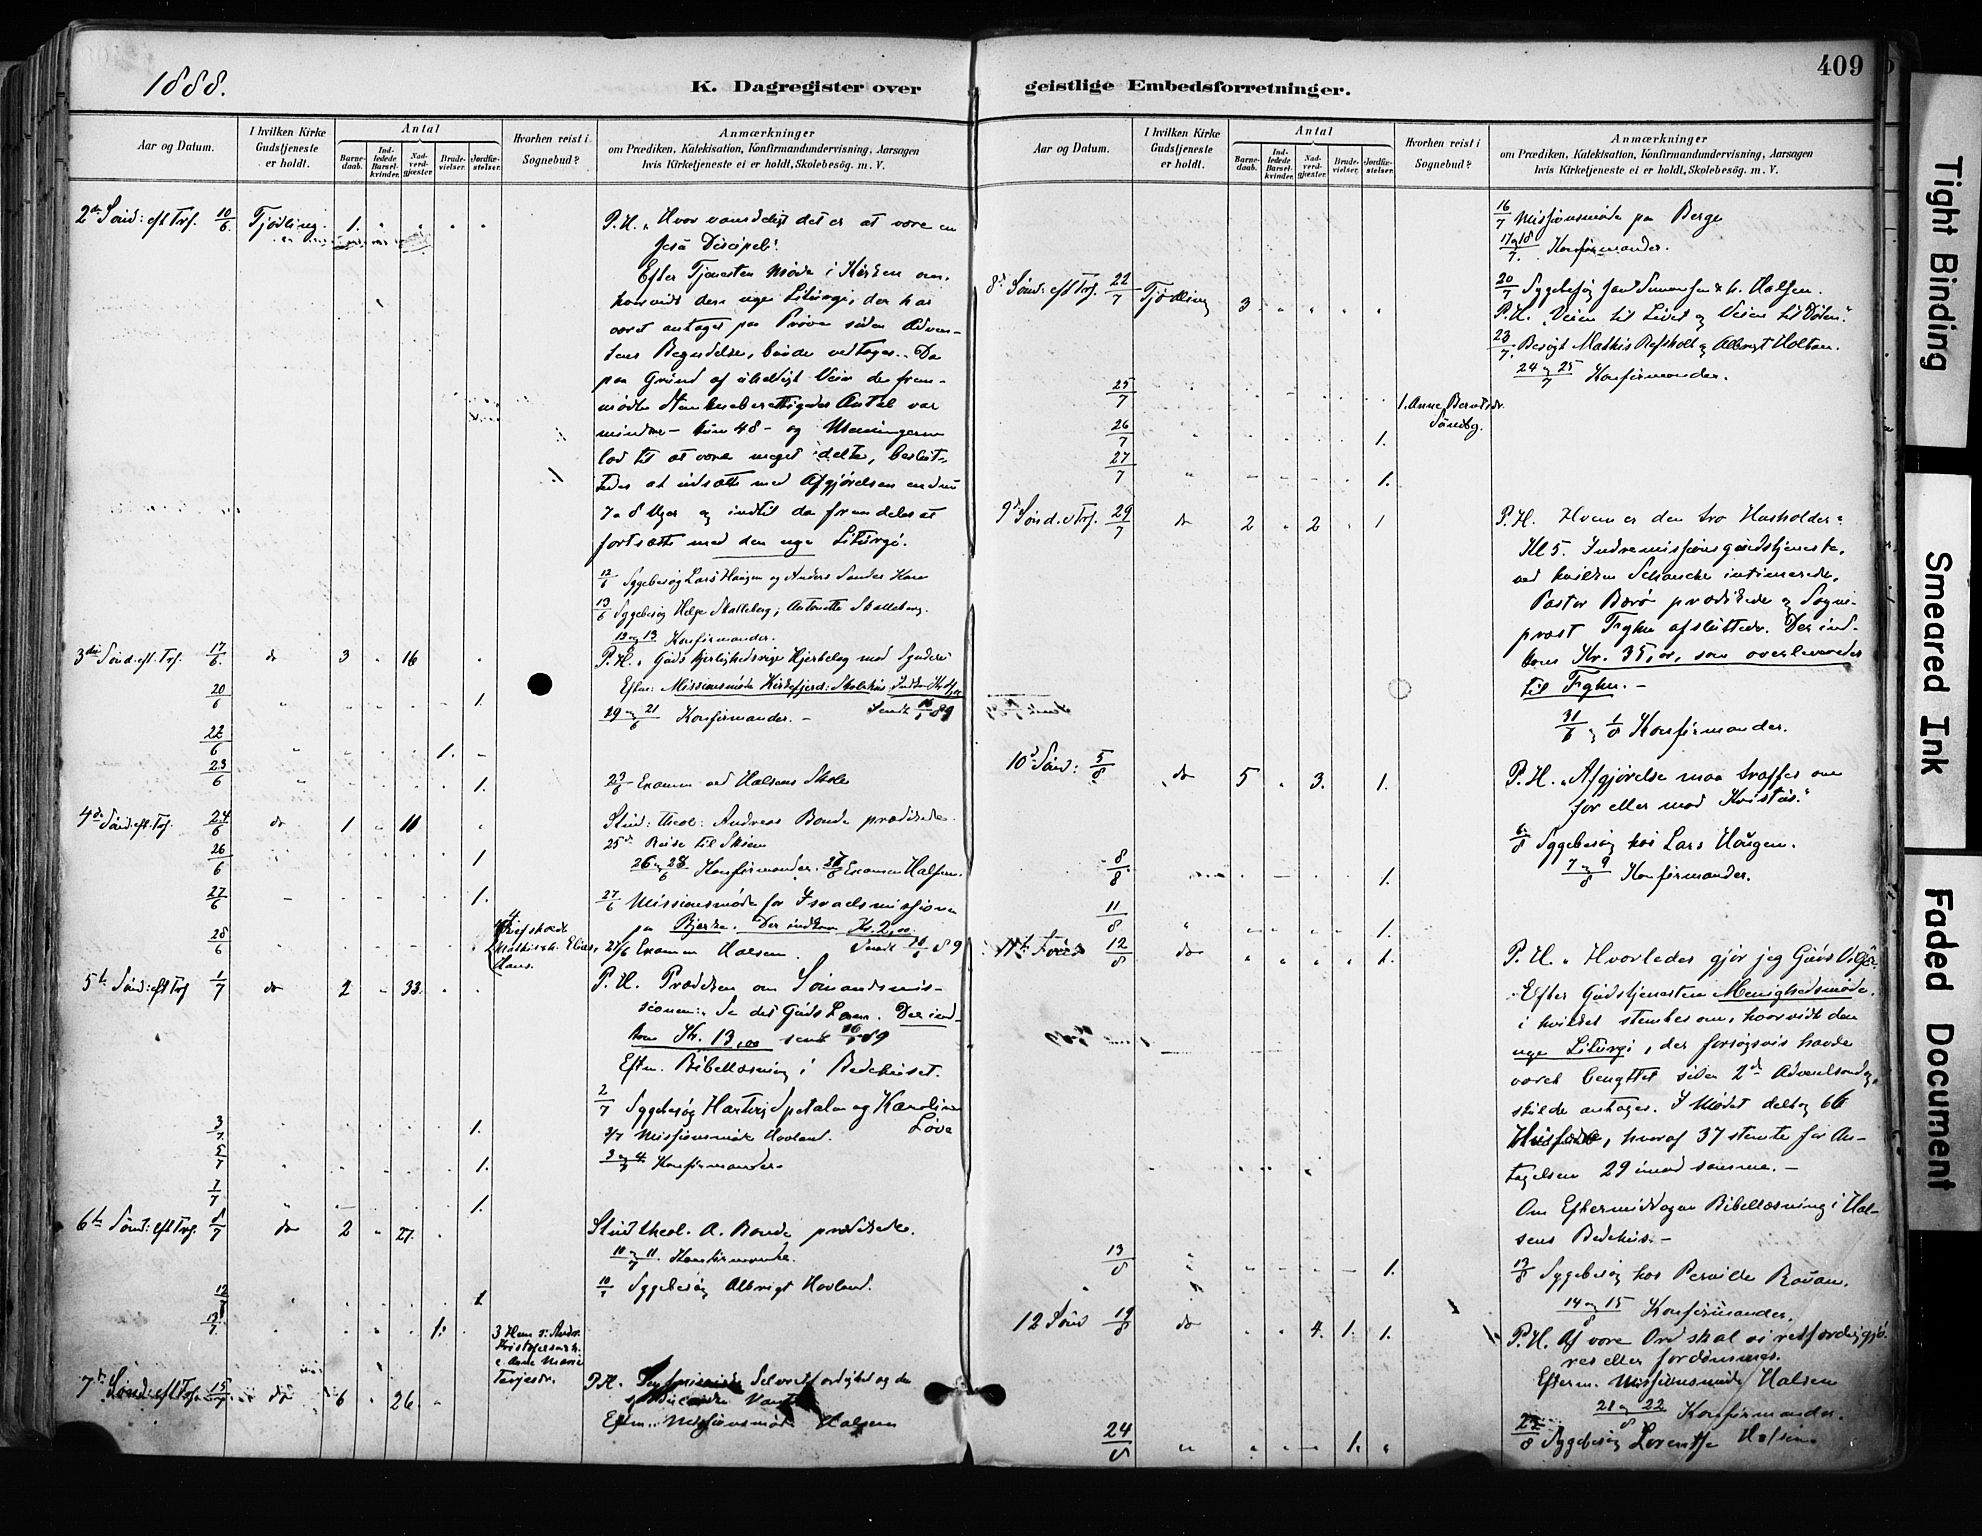 1888.
K. Dagregister over
geistlige Embedsforretninger.
409
Aar og Datum.
I hvilken Kirke Gudstjeneste er holdt.
Antal
Barnedaab.
Indledede Barselkvinder.
Nadverdgjæster.
Brudevielser.
Jordfæstelser.
Hvorhen reist i Sognebud?
Anmærkninger
om Prædiken, Katekisation, Konfirmandundervisning, Aarsagen
hvis Kirketjeneste ei er holdt, Skolebesøg. m. V.
2den Sønd: eft Trf. 10/6 Tjødling. 1. P.H. "Hvor vanskeligt det er at være en
Jesu Discipel".
Efter Tjenesten Møde i Kirken om,
hvorvidt den nye Liturgi, der har
været antaget paa Prøve siden Adven-
tens Begyndelse, burde vedtages. Da
paa Grund af uheldigt Veir de frem-
mødte Stemmeberettigedes Antal var
mindre - kun 48 - og Meningerne
lod til at være meget delte, beslut-
tedes at udsætte med Afgjørelsen endnu
7 a 8 Uger og indtil da fremdeles at
fortsætte med den nye Liturgi.
12/6 Sygebesøg Lars Haugen og Anders
13/6 Sygebesøg Helge Skalleberg, Antonette Skalleberg.
12 og 13/6 Konfirmander.
3die Sønd. eft. Trf. 17/6. do 3 16 P.H. "Guds kjerlighedsrige Hjertelag mod Syndere
Efter: Missionsmøde
20/6 1. 20 og 21/6 Konfirmander. - Sendt 89
22/6 1.
23/6 1. 23/6 Examen ved Halsens Skole
4de Sønd: eft. Trf. 24/6 do 1 11 Stud: theol: Andreas Bonde prædikede.
25de Reise til Skien
26/6 1 26 og 28/6 Konfirmander. Examen Halsen.
27/6 1. 27/6 Missionsmøde for Israelsmissionen
paa Bjerke. Der indkom Kr. 2,00.
28/6 Examen Halsen. Sendt 89
5te Sønd: eft Trf 1/7 do 2 33. P.H. Prædiken om Sømandsmis-
sionen: Se det Guds Lam. Der ind-
kom Kr. 13,00 sendt 89
Eftm. Bibellæsning i Bedehuset.
2/7 Sygebesøg og Karoline
Løve
3/7. 1. 3/7 Missionsmøde Hovland.
5/7 1. 3 og 4/7 Konfirmander.
7/7 1.
6te Sønd: eft Trf. 8/7 do 2 27. Stud theol. A. Bonde prædikede.
10 og 11/7 Konfirmander.
Sygebesøg Albrigt Hovland.
12/7 1
13/7. 1. 3 Hem
Anne Marie
7de Sønd: eft Trf. 15/7. do 6 26. P.H. Selvretfærdighed og de
Eftm. Missionsmøde Halsen
Aar og Datum.
I hvilken Kirke Gudstjeneste er holdt.
Antal
Barnedaab.
Indledede Barselkvinder.
Nadverdgjæster.
Brudevielser.
Jordfæstelser.
Hvorhen reist i Sognebud?
Anmærkninger
om Prædiken, Katekisation, Konfirmandundervisning, Aarsagen
hvis Kirketjeneste ei er holdt, Skolebesøg. m. V.
16/7 Missionsmøde paa Berge
17 og 18/7. Konfirmander.
20/7 Sygebesøg Halsen.
8de Sønd: eft Trf. 22/7 Tjødling 3 P.H. "Veien til Livet og Veien til Døden".
23/7. Besøgt Mathis Refsholt og Albregt Holtan.
24 og 25/7 Konfirmander.
25/7 1. Anne Berntsdr.
Sandby.
26/7 1.
27/7 1.
9de Sønd. e Trf. 29/7 do 2 2 1 P.H. Hvem er den tro Husholder:
Kl 5. Indremissionsgudstjeneste,
ved hvilken Schancke intimerede,
Pastor prædikede og Sogne-
præst afsluttede. Der ind-
kom Kr. 35,00, som overleveredes
til
31/7 og 1/8 Konfirmander.
10de Sønd: 5/8 do 5 3. 1. P.H. "Afgjørelse maa træffes om
for eller mod Kristus."
6/8 Sygebesøg hos Lars Haugen.
8/8. 1. 7 og 9/8 Konfirmander.
11/8 1.
11te 12/8 do 1. P.H. "Hvorledes gjør jeg Guds Vilje?
Efter Gudstjenesten Menighedsmøde,
i hvilket stemtes om, hvorvidt den
nye Liturgi, der forsøgsvis havde
været benyttet siden 2den Adventsøndag,
skulde antages. I Mødet deltog 66
Husfædre, hvoraf 37 stemte for An-
tagelsen 29 imod samme. -
Om Eftermiddagen Bibellæsning i Hal-
sens Bedehus. -
13/8 1. 13/8 Sygebesøg hos Pernille Rauan.
14 og 15/8 Konfirmander.
12 Sønd 19/8 do 4. 1. 1. P.H. Af vore Ord skal vi retfærdiggjø-
res eller fordømmes.
Efterm. Missionsmøde Halsen
21 og 22/8 Konfirmander.
24/8 1. Sygebesøg Halsen.
Tight Binding
Smeared Ink
Faded Document